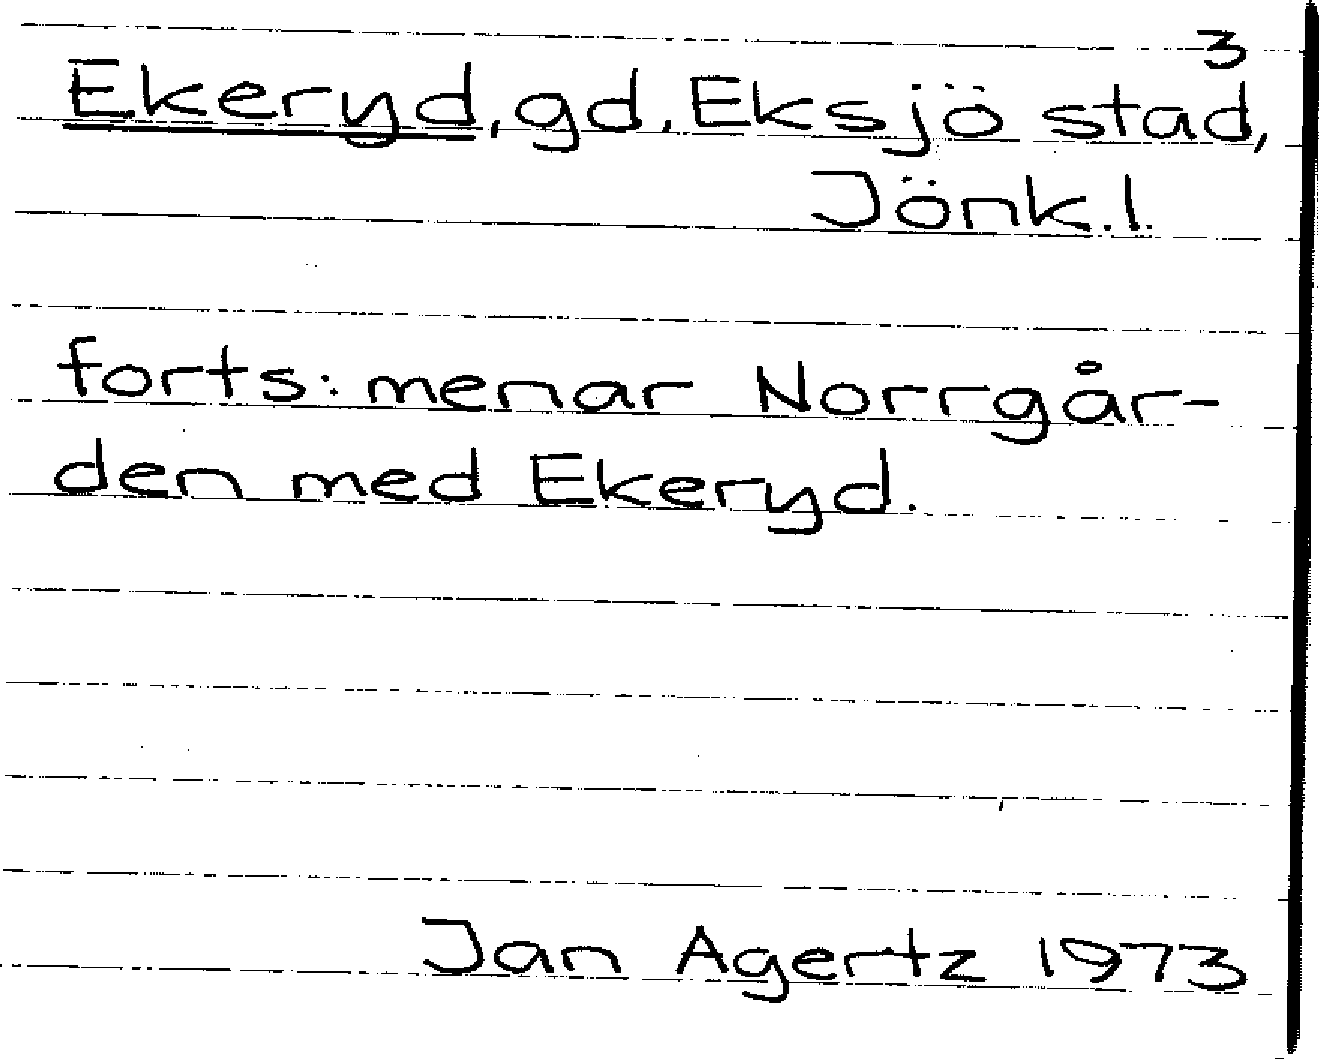 3
Ekeryd, gd, Eksjö stad,
Jönk.l.
forts: menar Norrgår-
den med Ekeryd.
Jan Agertz 1973